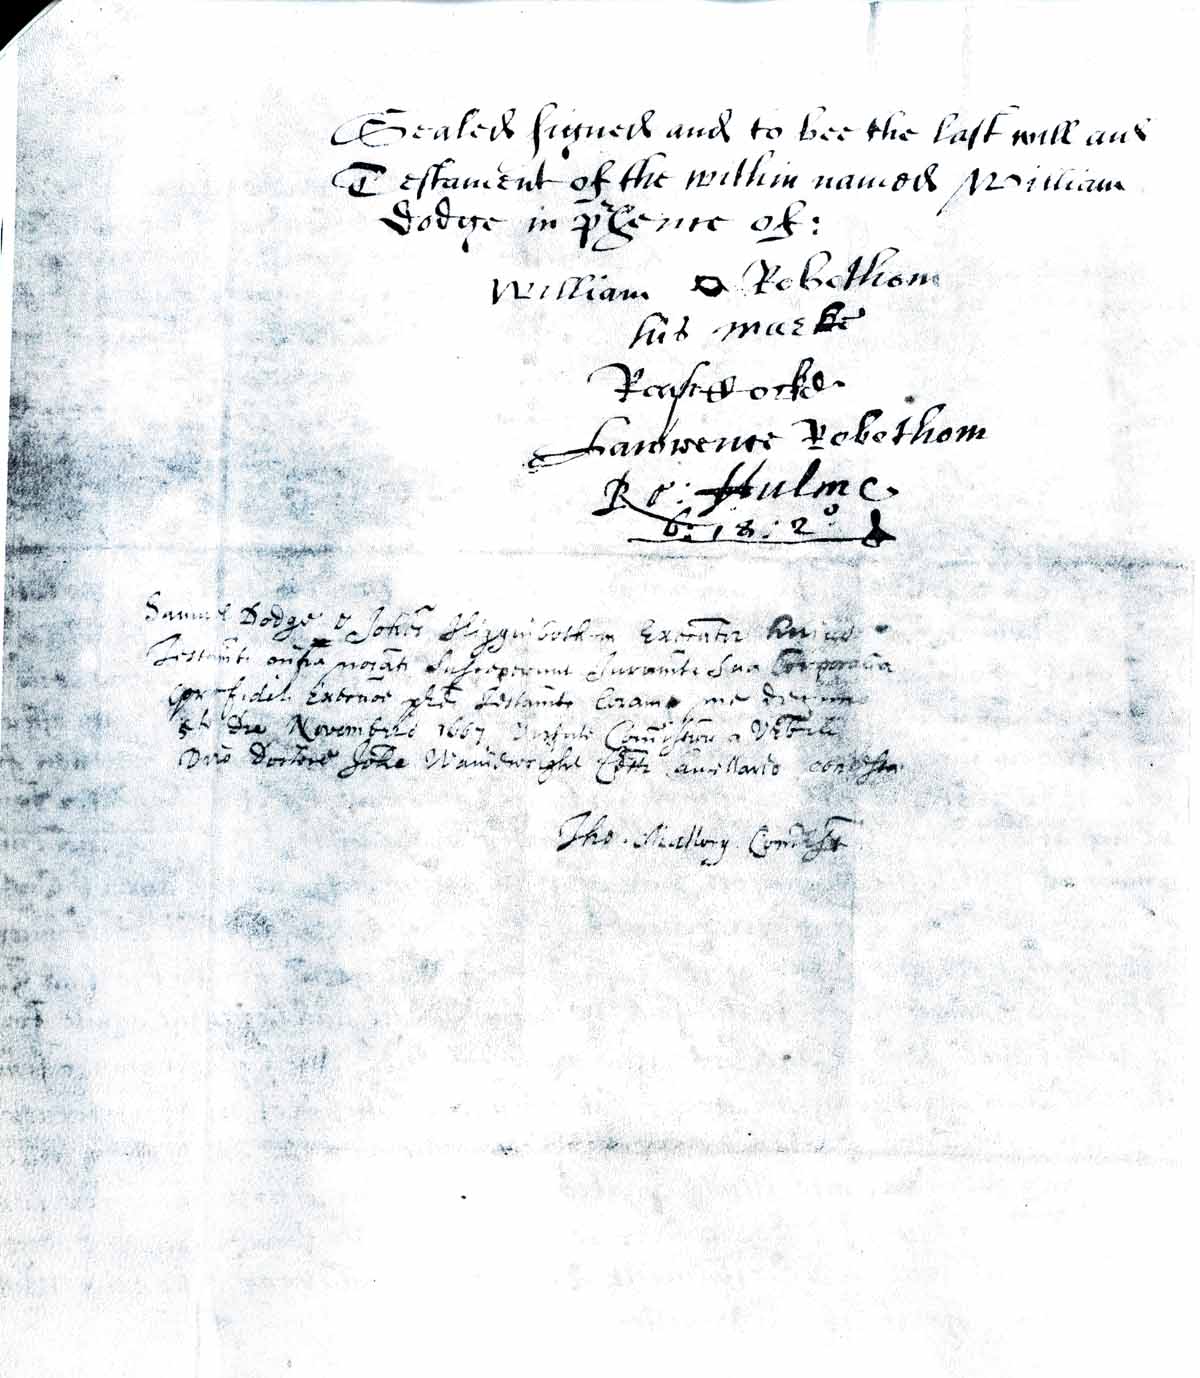 Sealed signed and to bee the last will and
Testament of the within named William
dodge in p'sence of:
William Robothom
his marke
Lawwrence Robothom
Ro: Hulme
6: 18: 2°
Samuel Dodge & Johes Higginbothom Executor huius
Testamti susceperunt Juramta sua Corporalia
fideli Testamti Coram me decimo
die Novembris 1667 Comission a Vebli
Dno Doctore Johe Wainewright
Tho. Mallory